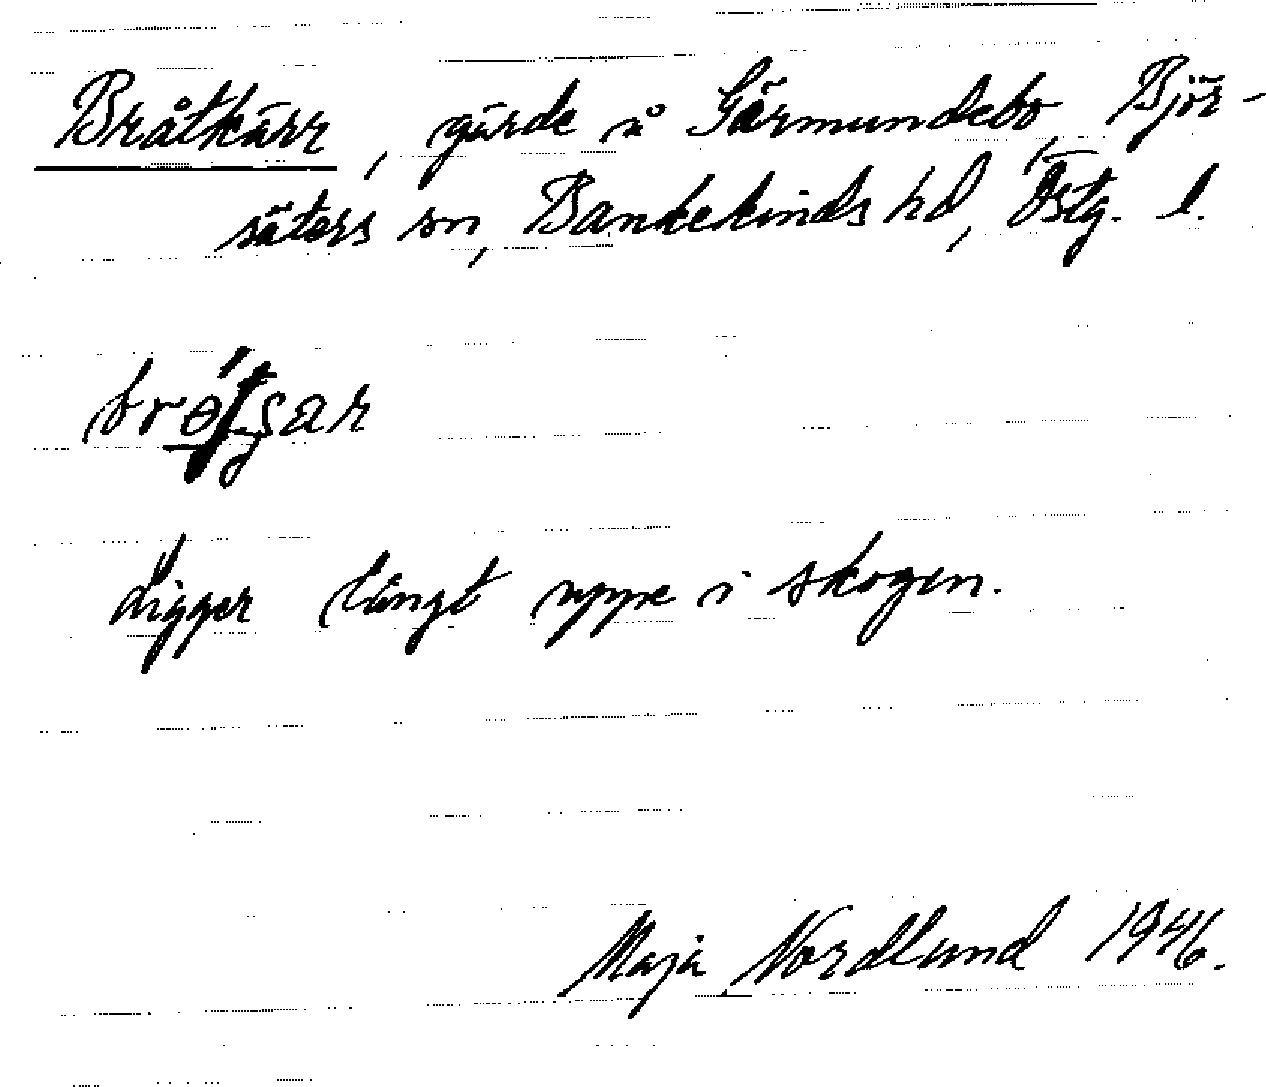 Bråtkärr, gärde å Gärmundebo, Björ-
säters sn, Bankekinds hd, Östg. l.
ligger långt uppe i skogen.
Maja Nordlund 1946.